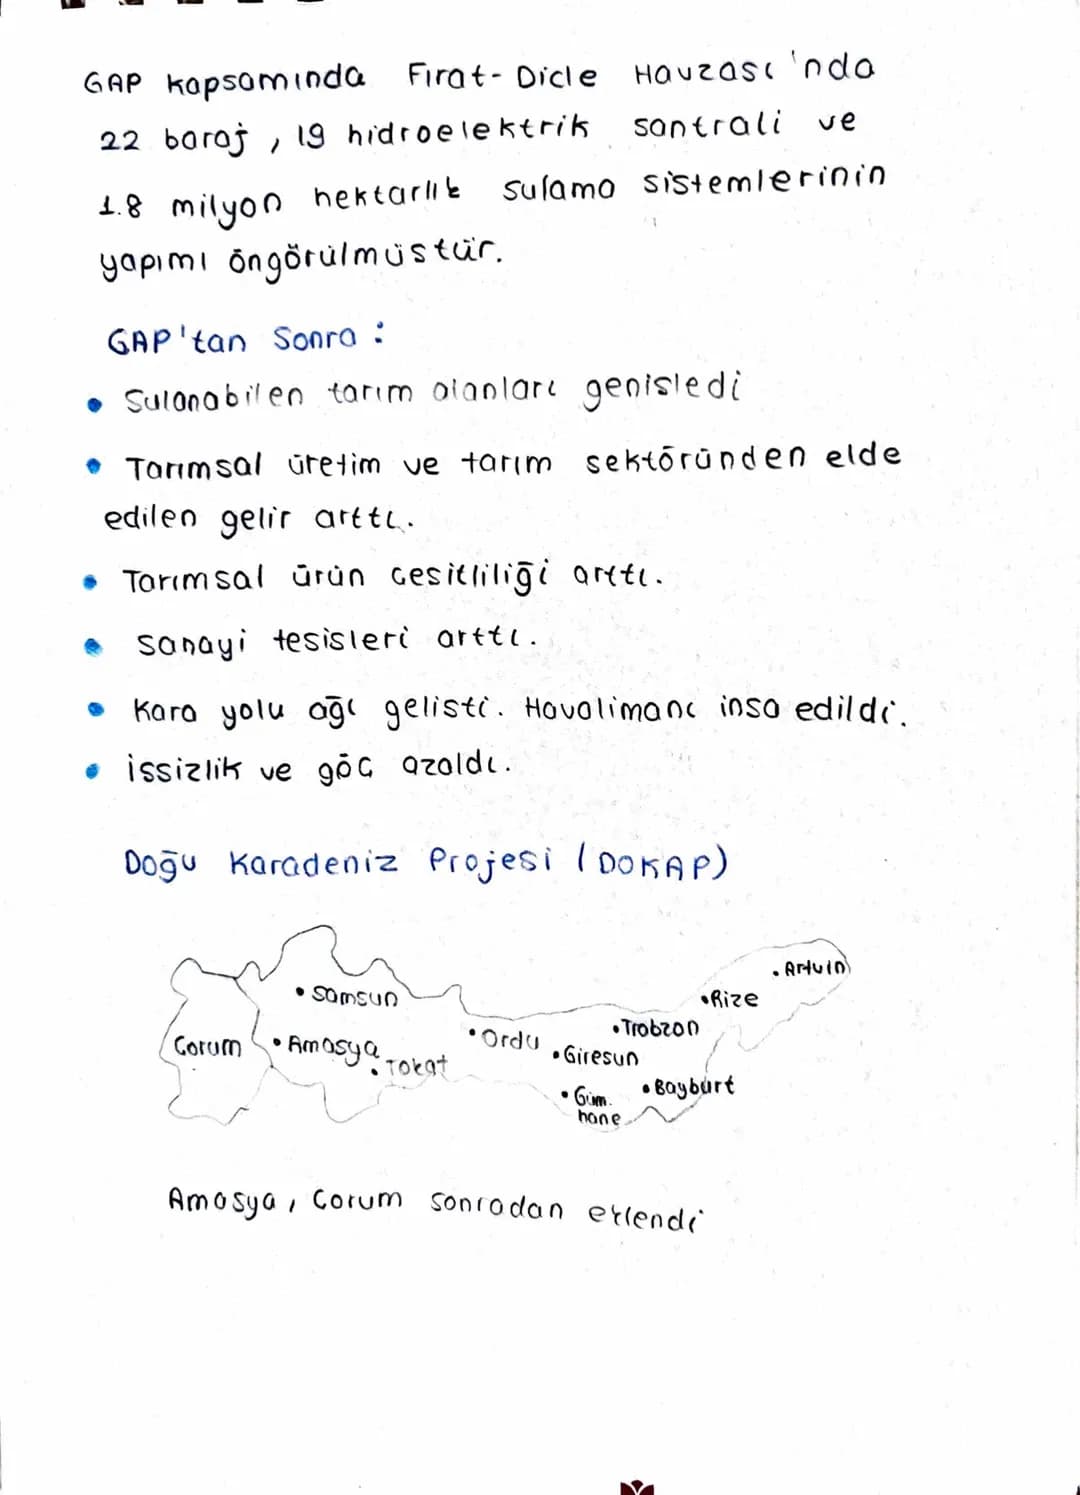 GAP kapsamında Fırat-Dicle Havzası'nda
22 baraj, 19 hidroelektrik santrali ve
1.8 milyon hektarlık sulama sistemlerinin
yapımı öngörülmüstür.
GAP'tan Sonra :
• Sulanabilen tarım alanları genisledi
• Tarımsal üretim ve tarım sektöründen elde
edilen gelir arttı.
• Tarımsal ürün cesitliliği arttı.
• sanayi tesisleri arttı.
• Kara yolu ağı gelisti. Havalimanı insa edildi.
• issizlik ve göc azaldı.
Doğu Karadeniz Projesi (DOKAP)
• Artvin
• Samsun
• Rize
• Trabzon
• Ordu
Corum
• Amasya
• Giresun
• Tokat
• Bayburt
• Güm.
hane
Amasya, Corum sonradan eklendi